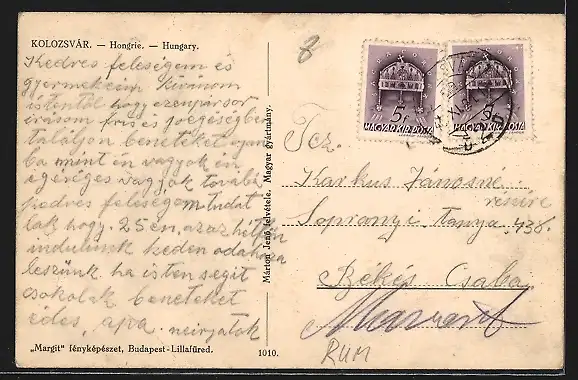 KOLOZSVÁR. — Hongrie. — Hungary.
8
Kedves feleségem és
gyermekeim kivánom
istentöl hogy ezen pár sor
irásom fris és jo egéségbe
találjon benetéket
ba mint én vagyok én
egéséges vagyok továbá
kedves feleségem tudat
lak hogy 25 én azaz hétfön
indulunk keden odahaza
leszünk ha isten segit
csokolak beneteket
édes apa. ne irjatok
„Margit" fényképészet, Budapest-Lillafüred.
1010.
Márton Jenő felvétele. Magyar gyártmány.
5f
MAGYAR KIR. POSTA
5f
MAGYAR KIR. POSTA
Tcz.
Karkus Jánosné
részire
Sopronyi Tanya 438.
Békés Csaba
RUM